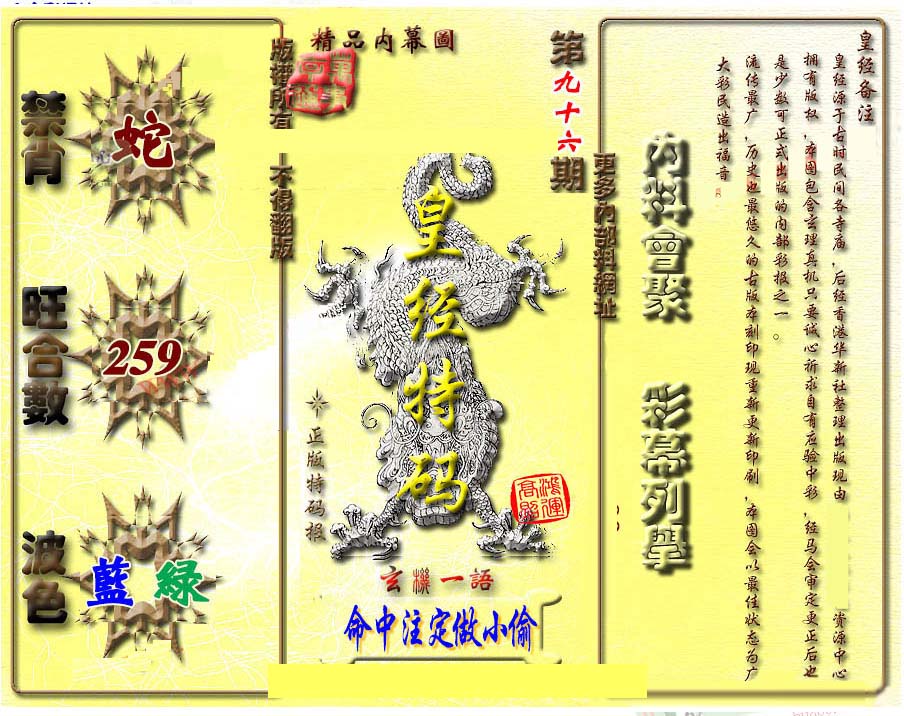 精品內幕圖
第九十六期
版權所有
不得翻版
更多內部料網址
禁肖
蛇
旺合數
259
波色
藍 綠
皇经特码
正版特码报
鴻運高照
玄機一語
命中注定做小偷
內料會聚
彩幕列舉
皇经备注
皇经源于古时民间各寺庙,后经香港华新社整理出版现由 資源中心
拥有版权,本图包含玄理真机只要诚心祈求自有应验中彩,经马会审定更正后也
是少数可正式出版的内部彩报之一。
流传最广,历史也最悠久的古版本刻印现重新更新印刷,本图会以最佳状态为广
大彩民造出福音